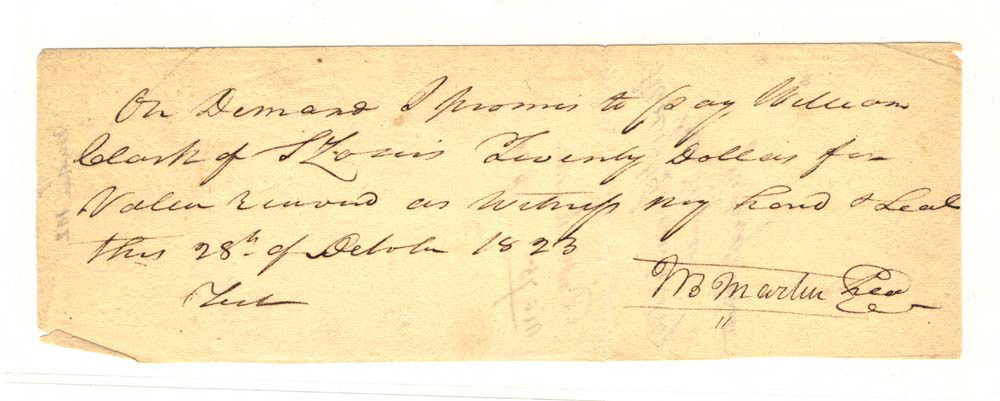 On Demand I promis to pay William
Clark of St Louis Twenty Dollars for
Value Received as Witness my hand & Seal
this 28th of October 1823
Test
WB Martin Seal